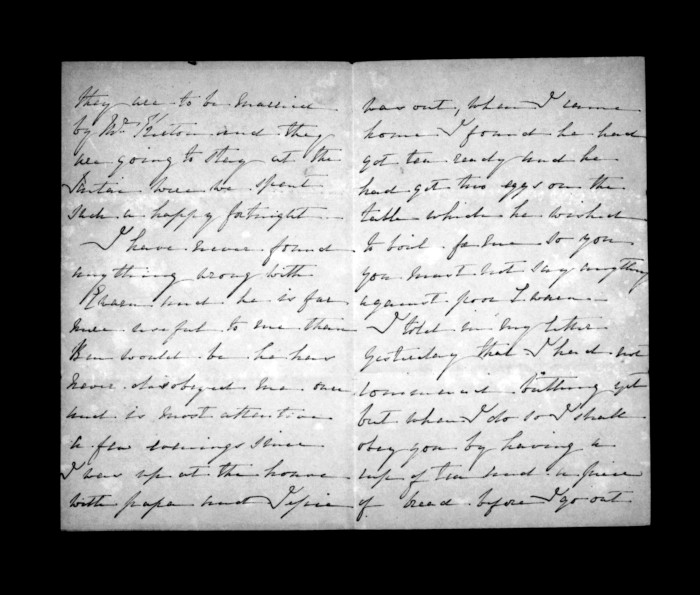 they are to be married
by Mr and they
are going to stay at the
where we spent
such a happy fortnight
I have never found
anything wrong with
and he is far
more useful to me than
Ben would be he has
never disobeyed me once
and is most attentive
a few evenings since
I was up at the house
with papa and
was out, when I came
home I found he had
got tea ready and he
had got two eggs on the
table which he wished
to boil for me so you
you must not say anything
against poor
I told in my letter
yesterday that I had not
commenced bathing yet
but when I do so I shall
obey you by having a
cup of tea and a piece
of bread before I go out